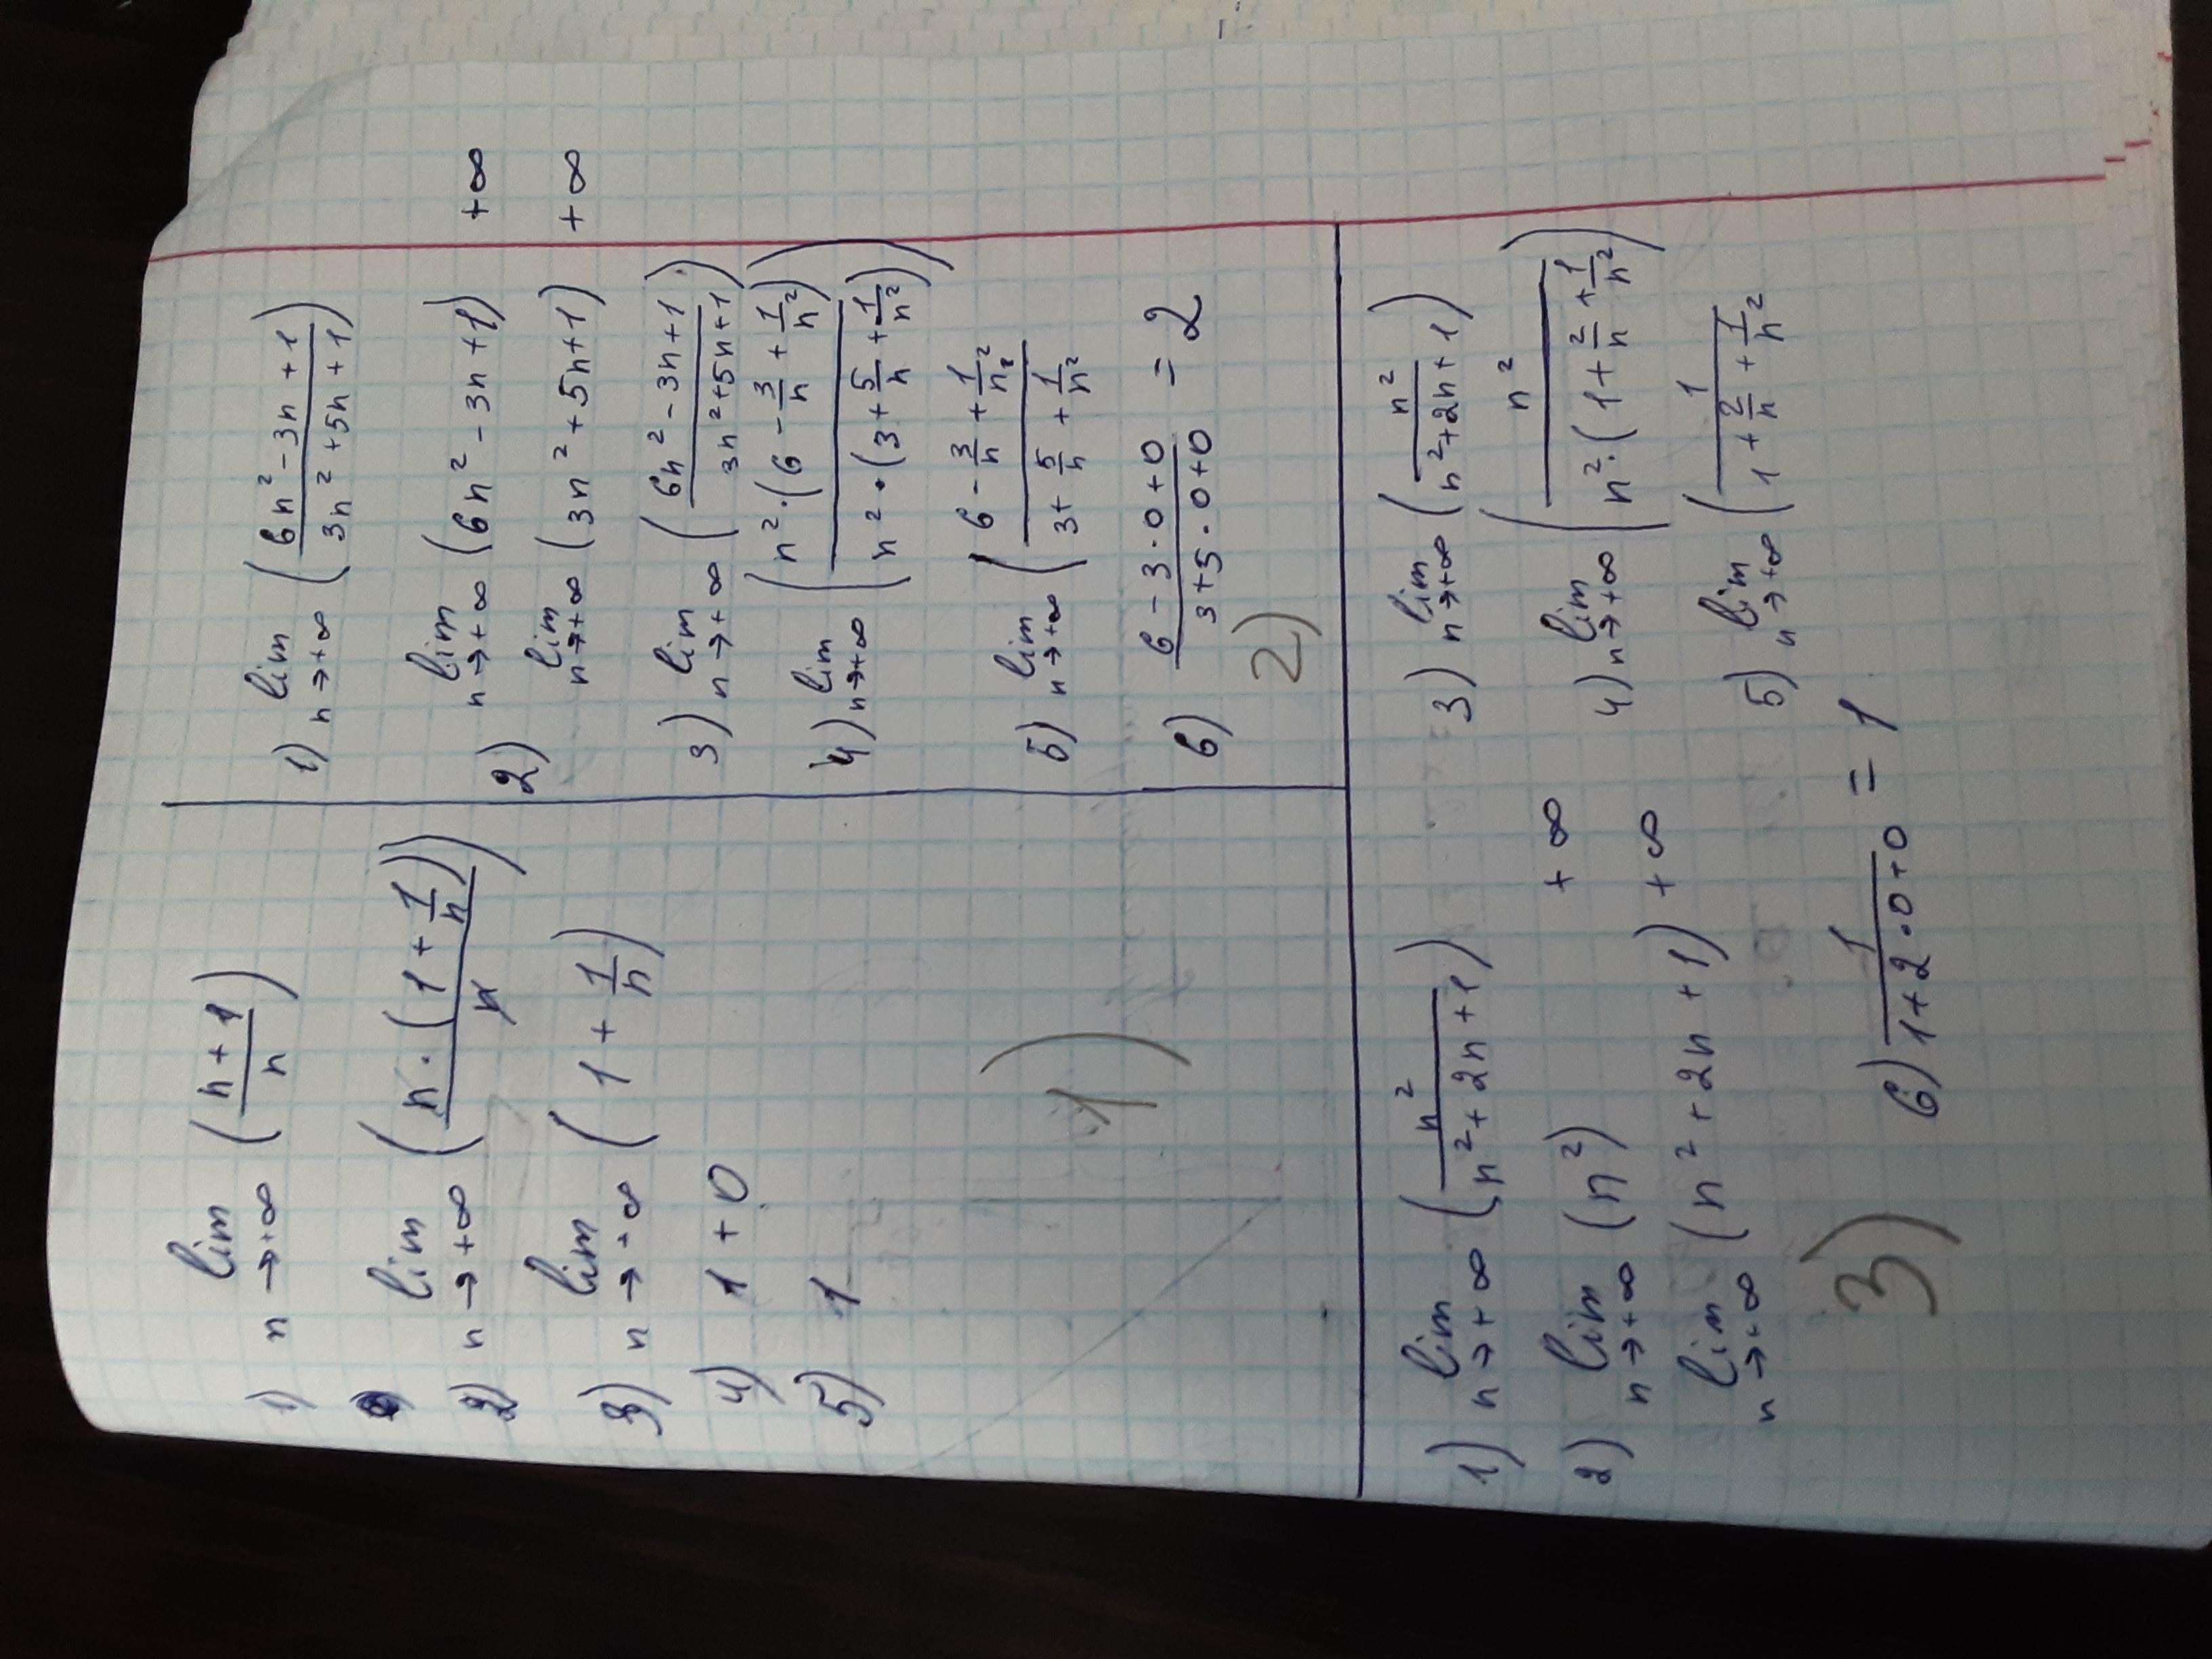 1) lim n→+∞ ((n+1)/n)
2) lim n→+∞ ((n·(1+1/n))/n)
3) lim n→+∞ (1+1/n)
4) 1+0
5) 1
1)
1) lim n→+∞ ((6n²-3n+1)/(3n²+5n+1))
2) lim n→+∞ (6n²-3n+1) +∞
lim n→+∞ (3n²+5n+1) +∞
3) lim n→+∞ ((6n²-3n+1)/(3n²+5n+1))
4) lim n→+∞ ((n²·(6-3/n+1/n²))/(n²·(3+5/n+1/n²)))
5) lim n→+∞ ((6-3/n+1/n²)/(3+5/n+1/n²))
6) (6-3·0+0)/(3+5·0+0) = 2
2)
1) lim n→+∞ (n²/(n²+2n+1))
2) lim n→+∞ (n²) +∞
lim n→+∞ (n²+2n+1) +∞
3) lim n→+∞ (n²/(n²+2n+1))
4) lim n→+∞ (n²/(n²·(1+2/n+1/n²))
5) lim n→+∞ (1/(1+2/n+1/n²)
6) 1/(1+2·0+0) = 1
3)